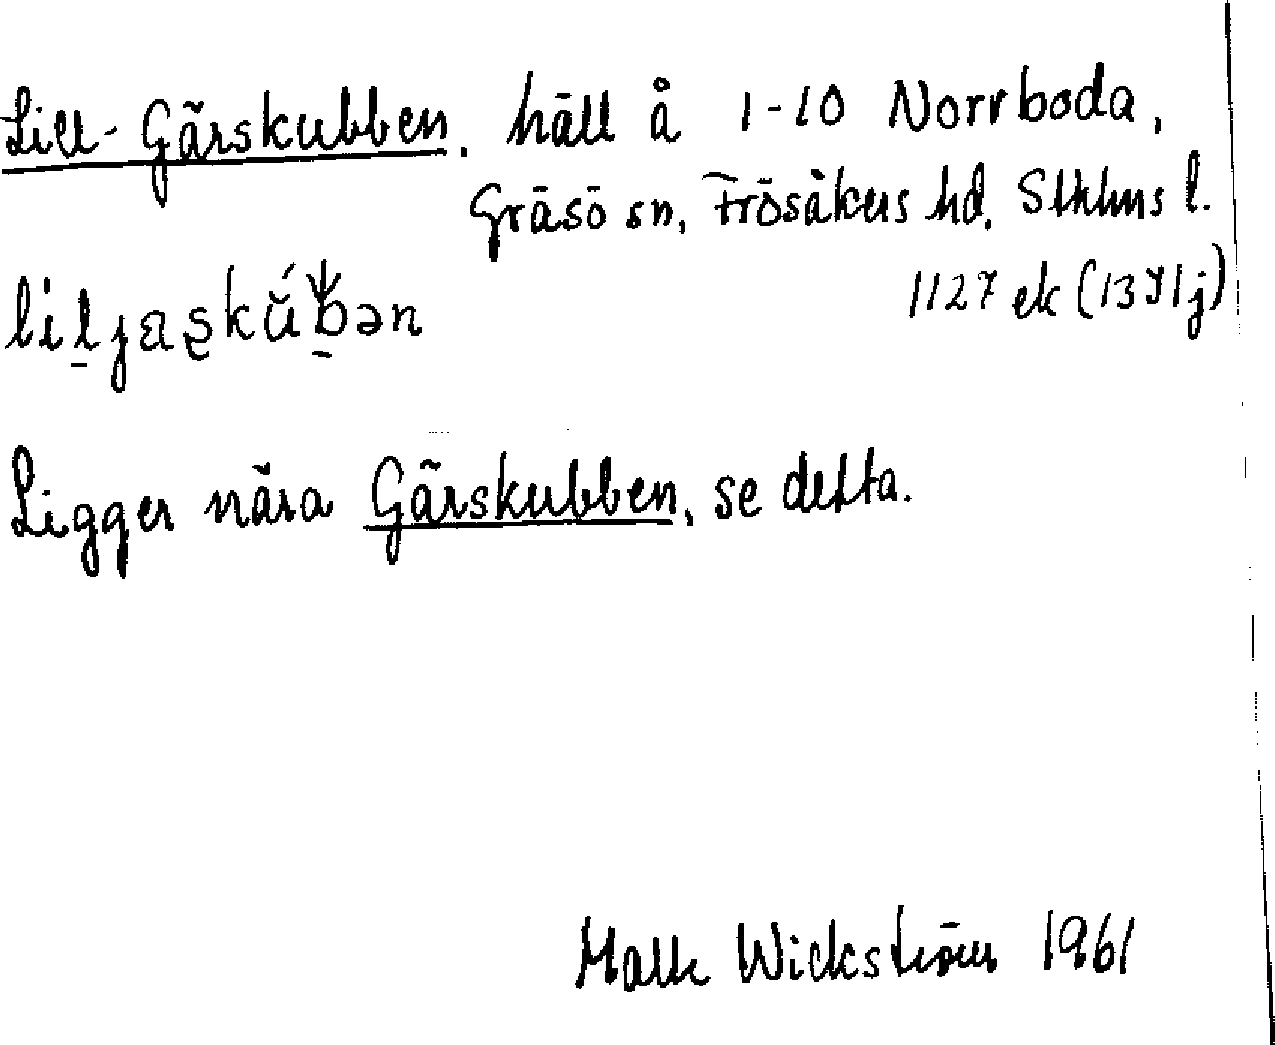 Lill-Gärskubben. häll å 1-10 Norrboda,
Gräsö sn, Frösåkers hd. Sthlms l.
1127 ek (1371j)
Ligger nära Gärskubben, se detta.
Wickström 1961